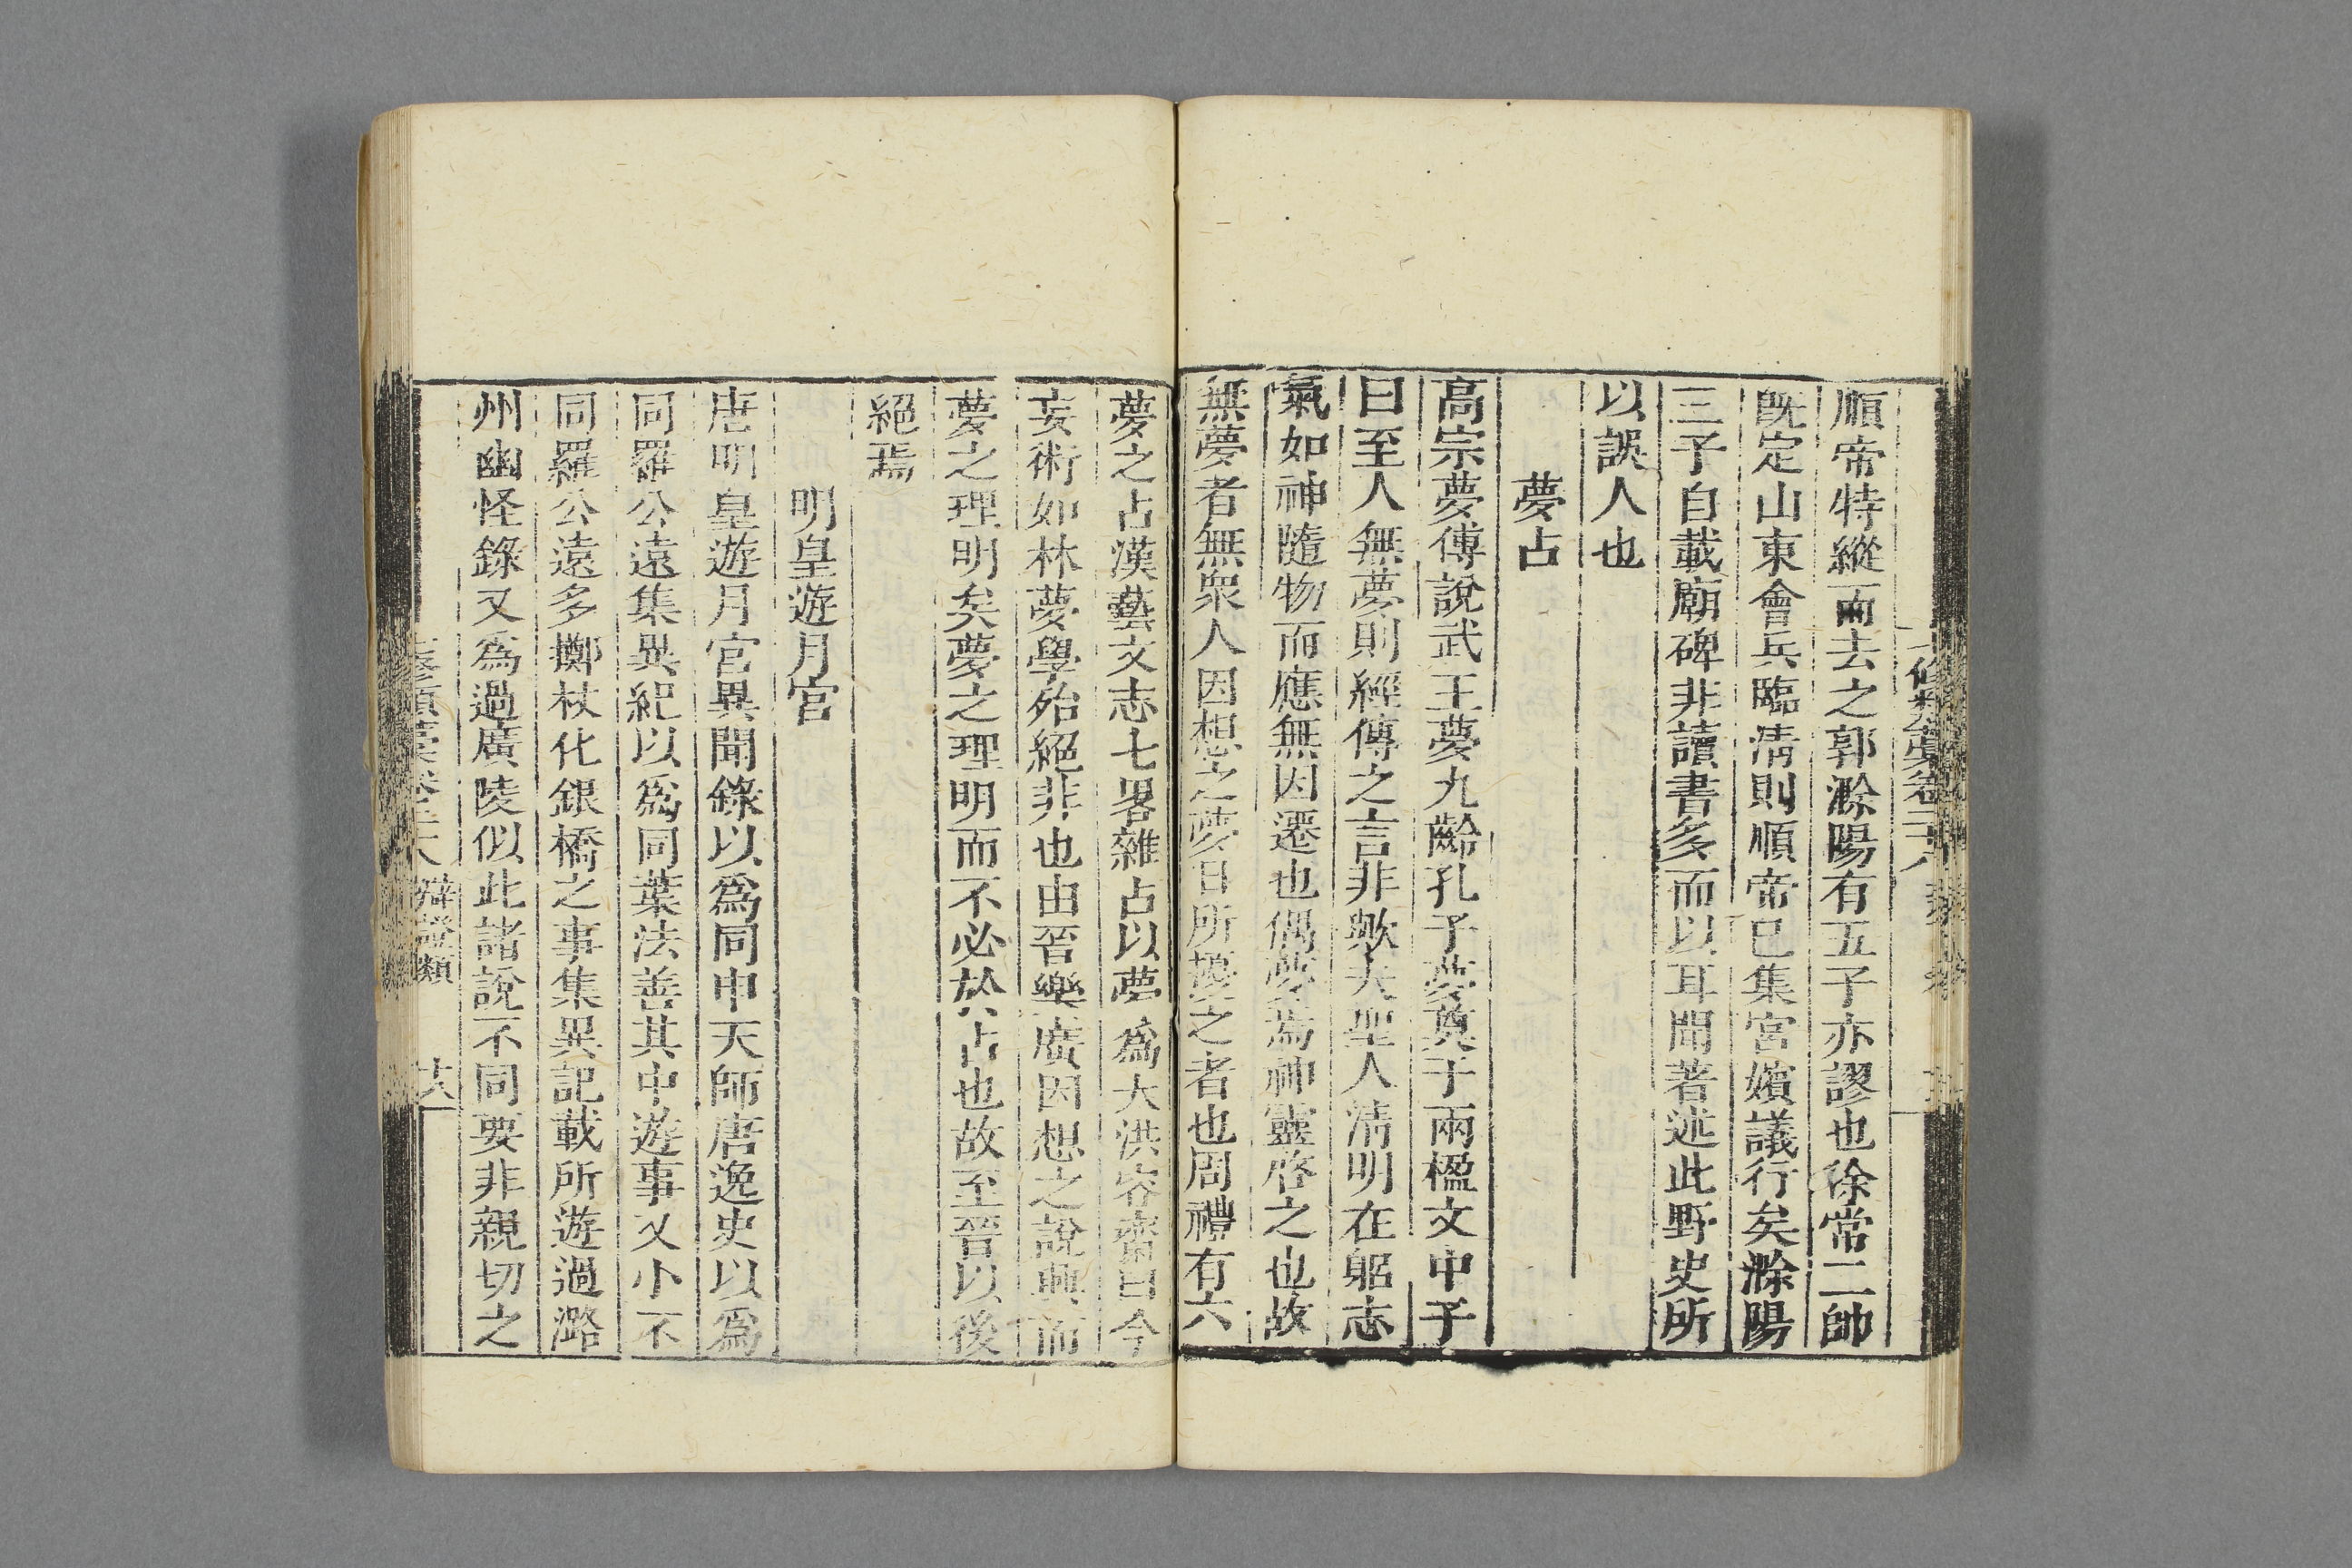 順帝特縱而去之郭滁陽有五子亦謬也徐常二帥
既定山東會兵臨淸則順帝已集宮嬪議行矣滁陽
三子自載廟碑非讀書多而以耳聞著述此野史所
以誤人也
夢占
高宗夢傅說武王夢九齡孔子夢奠于兩楹文中子
曰至人無夢則經傳之言非歟夫聖人淸明在躬志
氣如神隨物而應無因遷也偶夢焉神靈啓之也故
無夢者無衆人因想之夢日所擾之者也周禮有六
夢之占漢藝文志七畧雜占以夢爲大洪容齋曰今
妄術如林夢學殆絕非也由晉樂廣因想之說興而
夢之理明矣夢之理明而不必於占也故至晉以後
絕焉
明皇遊月宮
唐明皇遊月宮異聞錄以爲同申天師唐逸史以爲
同羅公遠集異紀以爲同葉法善其中遊事又小不
同羅公遠多擲杖化銀橋之事集異記載所遊過潞
州幽怪錄又爲過廣陵似此諸說不同要非親切之
辯證類